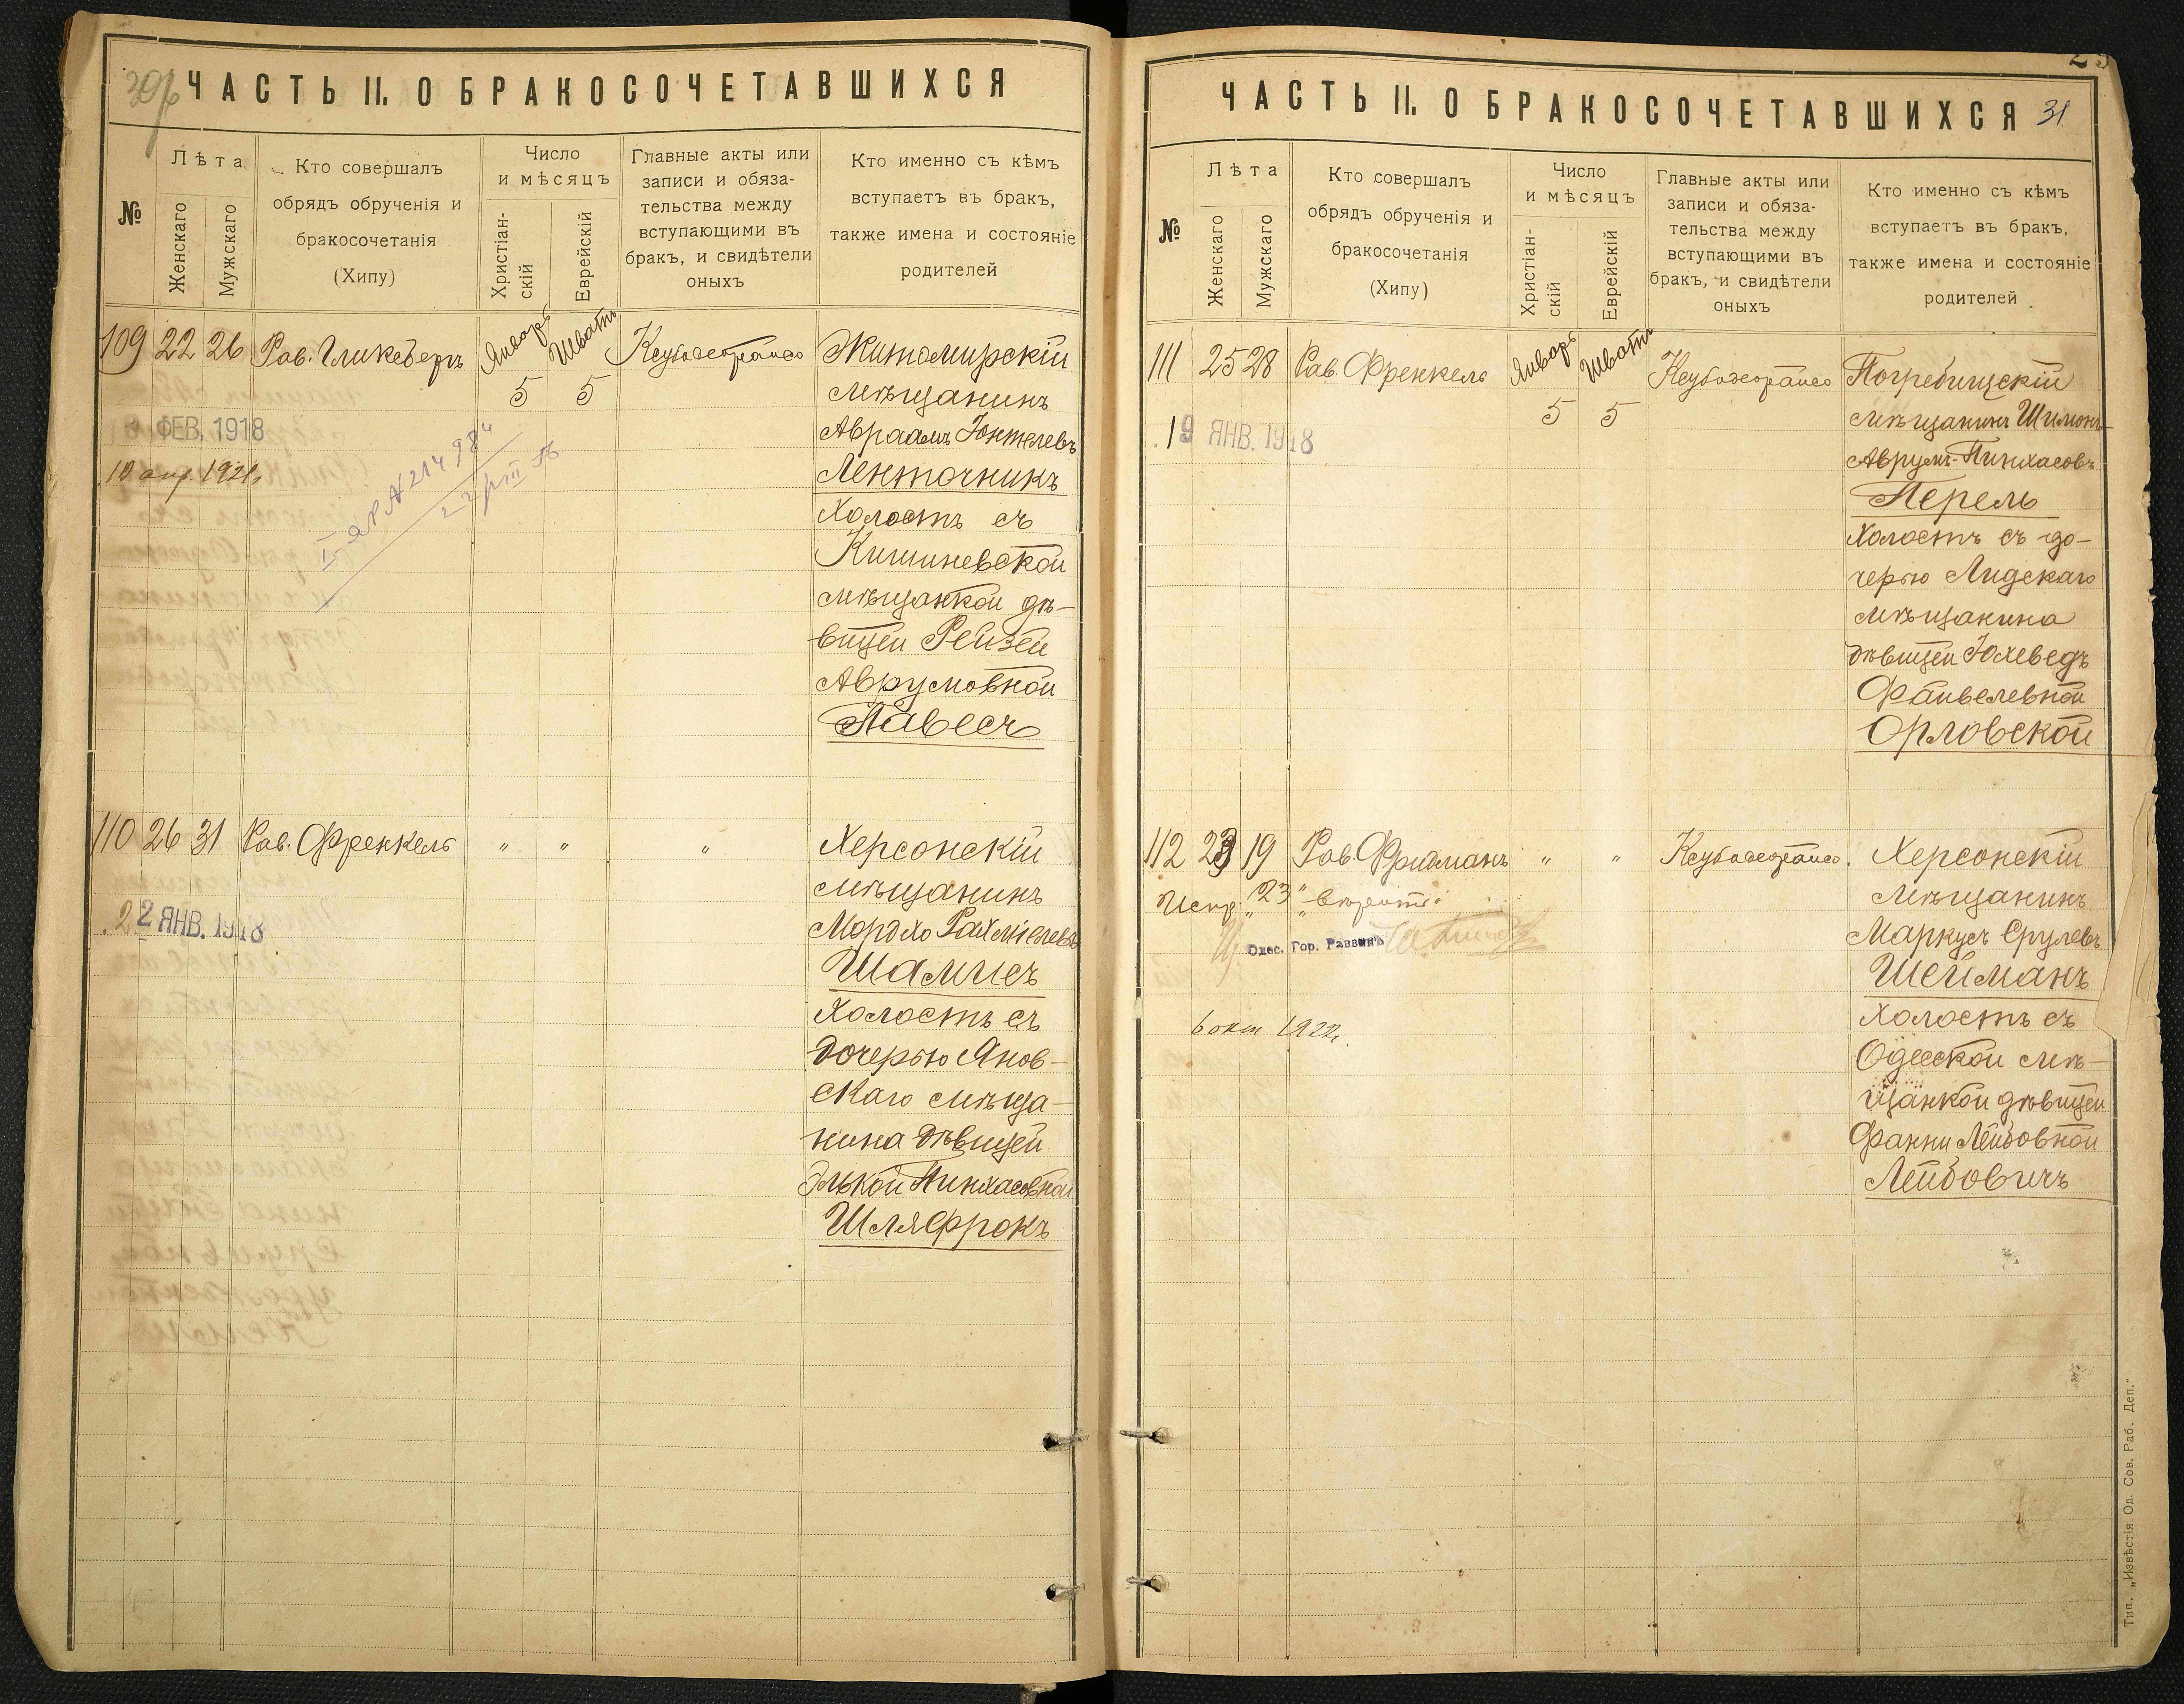 ЧАСТЬ II. О БРАКОСОЧЕТАВШИХСЯ
№
Лѣта
Женскаго
Мужскаго
Кто совершалъ
обрядъ обрученія и
бракосочетанія
(Хипу)
Число
и мѣсяцъ
Христіан-
скій
Еврейскій
Главные акты или
записи и обяза-
тельства между
вступающими въ
бракъ, и свидѣтели
оныхъ
Кто именно съ кѣмъ
вступаетъ въ бракъ,
также имена и состояніе
родителей
109 22 26 Рав. Гликбергъ Январь 5 Шватъ 5
Житомирскій
мѣщанинъ
Авраамъ Іоктелевъ
Ленточникъ
Холостъ съ
Кишиневской
мѣщанкой дѣ-
вицей Рейзей
Аврумовной
Павесъ
ФЕВ. 1918
110 26 31 Рав. Френкель " " "
Херсонскій
мѣщанинъ
Мордхо Рахміелевъ
Шамисъ
Холостъ съ
дочерью Янов-
скаго мѣща-
нина дѣвицей
Элькой Пинхасовной
Шляфрокъ
22 ЯНВ. 1918
ЧАСТЬ II. О БРАКОСОЧЕТАВШИХСЯ 31
№
Лѣта
Женскаго
Мужскаго
Кто совершалъ
обрядъ обрученія и
бракосочетанія
(Хипу)
Число
и мѣсяцъ
Христіан-
скій
Еврейскій
Главные акты или
записи и обяза-
тельства между
вступающими въ
бракъ, и свидѣтели
оныхъ
Кто именно съ кѣмъ
вступаетъ въ бракъ,
также имена и состояніе
родителей
111 25 28 Рав. Френкель Январь 5 Шватъ 5
Погребищскій
мѣщанинъ Шимонъ-
Аврумъ-Пинхасовъ
Перель
Холостъ съ до-
черью Лидскаго
мѣщанина
дѣвицей Юхеведъ
Файвелевной
Орловской
19 ЯНВ. 1918
112 23 19 Рав. Фридманъ " "
Херсонскій
мѣщанинъ
Маркусъ Срулевъ
Шейманъ
Холостъ съ
Одесской мѣ-
щанкой дѣвицей
Фанни Лейбовной
Лейбовичъ
Испр. "23"
Одес. Гор. Раввинъ
6 окт 1922
Тип. „Извѣстія Од. Сов. Раб. Деп."